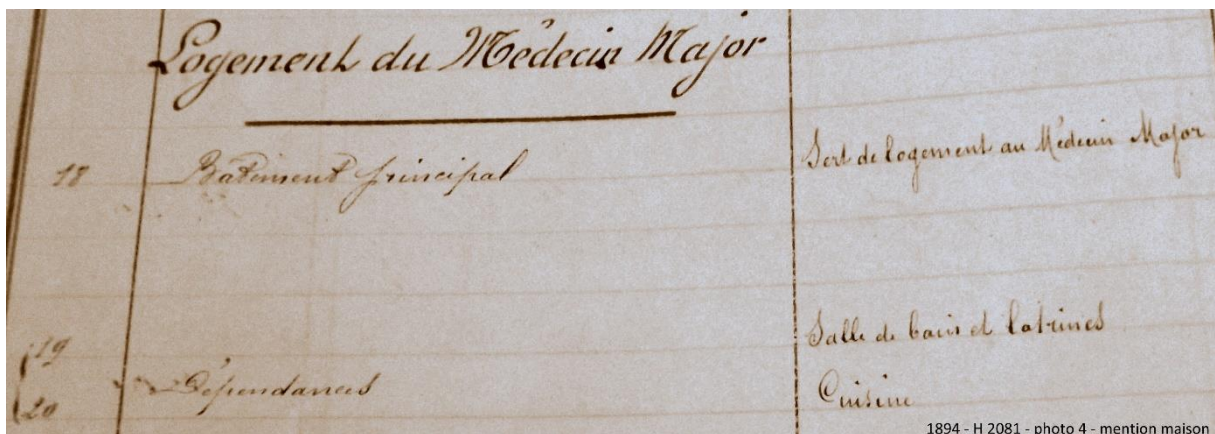 Logement du Médecin Major
18 Batiment principal Sert de logement au Médecin Major
19 Salle de bain et latrines
20 Dépendances Cuisine
1894 - H 2081 - photo 4 - mention maison